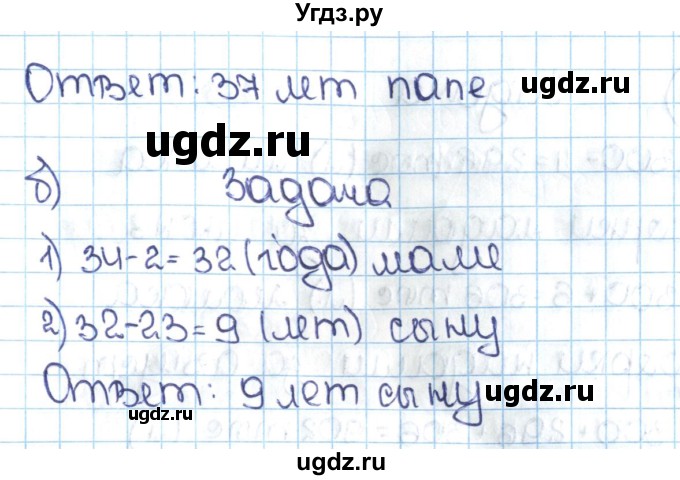 Угдз.ру
Ответ: 37 лет папе
ugdz.ru
ugdz.ru
б) Задача
1) 34-2=32(года) маме
ugdz.ru
2) 32-23=9 (лет) сыну
Ответ: 9 лет сыну
ugdz.ru
ugdz.ru
ugdz.ru